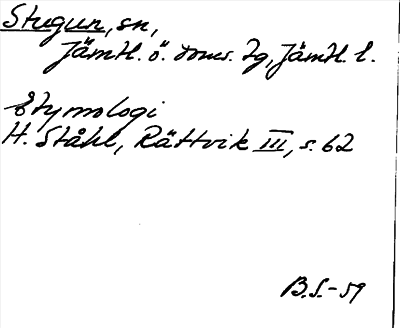 Stugun, sn,
Jämtl. ö. doms. tg, Jämtl. l.
Etymologi
H. Ståhl, Rättvik III, s. 62
B.S.-59